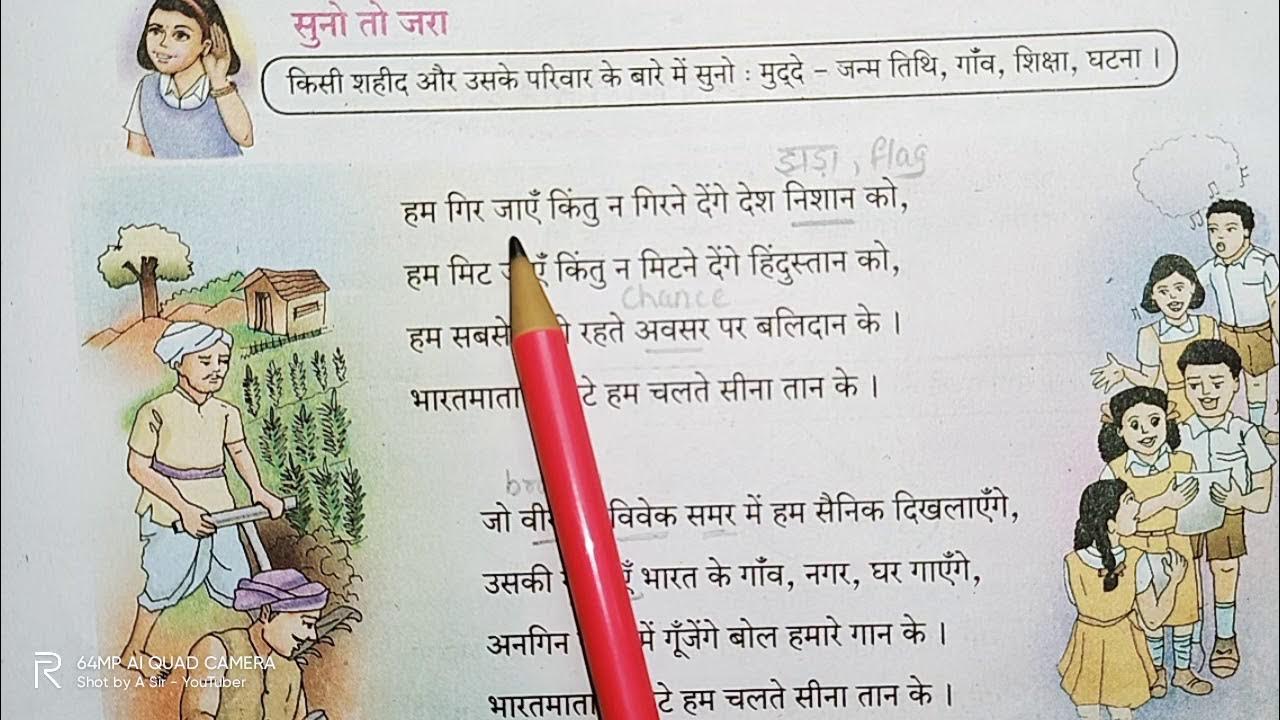 सुनो तो जरा
किसी शहीद और उसके परिवार के बारे में सुनो : मुद्दे – जन्म तिथि, गाँव, शिक्षा, घटना ।
झड़ा , flag
हम गिर जाएँ किंतु न गिरने देंगे देश निशान को,
हम मिट किंतु न मिटने देंगे हिंदुस्तान को,
chance
हम सबसे रहते अवसर पर बलिदान के ।
भारतमाता हम चलते सीना तान के ।
जो विवेक समर में हम सैनिक दिखलाएँगे,
उसकी भारत के गाँव, नगर, घर गाएँगे,
अनगिन में गूँजेंगे बोल हमारे गान के ।
भारतमाता हम चलते सीना तान के ।
64MP AI QUAD CAMERA
Shot by A Sir - YouTuber